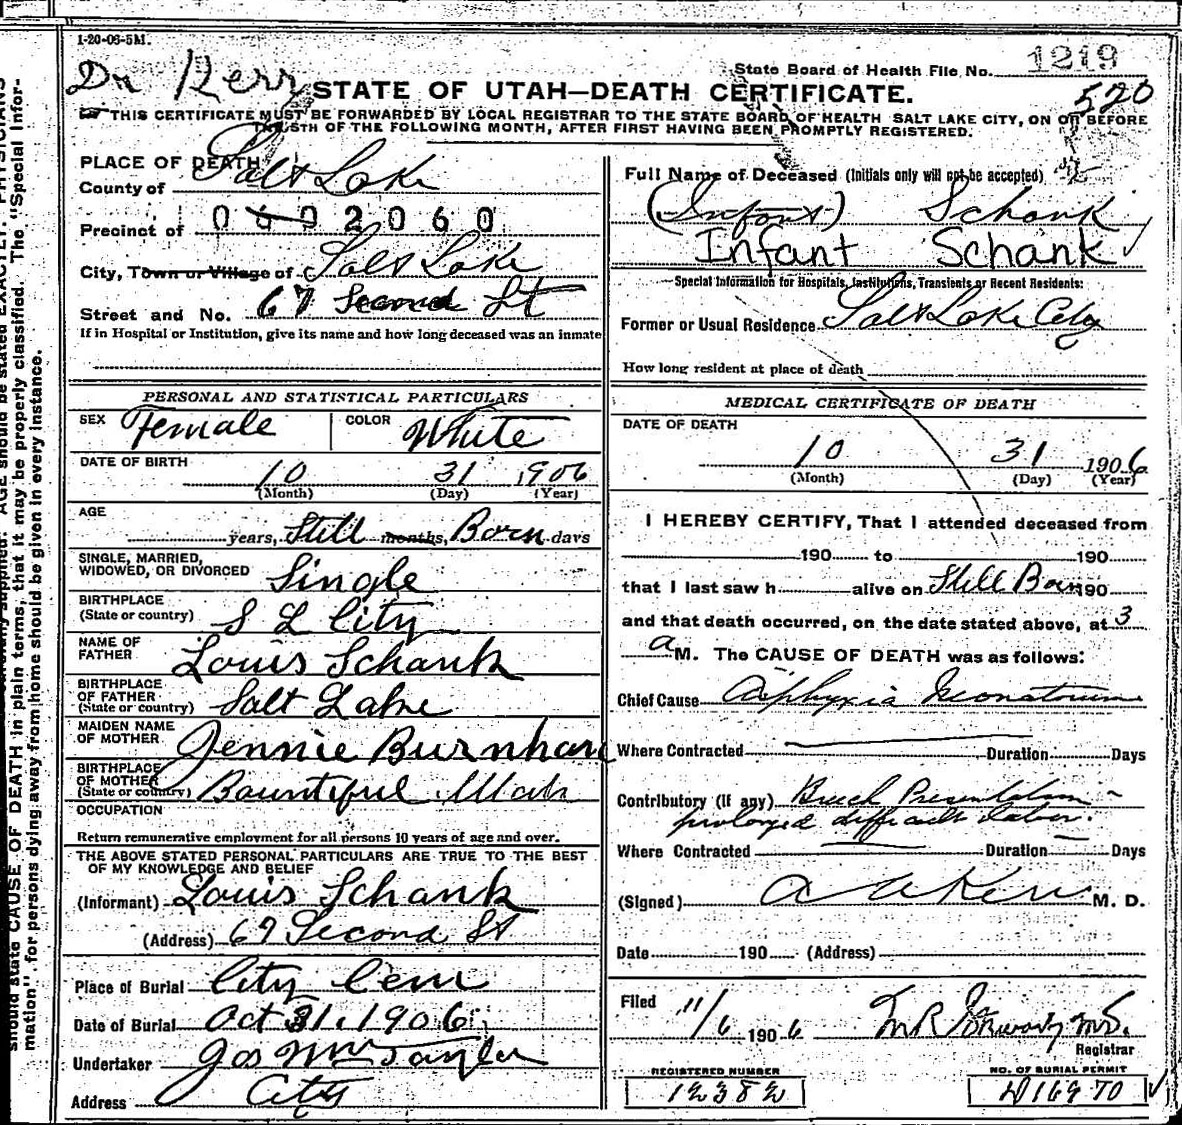 1-20-06-5M.
Dr Kerr
State Board of Health File No. 1219
520
STATE OF UTAH—DEATH CERTIFICATE.
THIS CERTIFICATE MUST BE FORWARDED BY LOCAL REGISTRAR TO THE STATE BOARD OF HEALTH SALT LAKE CITY, ON OR BEFORE
THE 5TH OF THE FOLLOWING MONTH, AFTER FIRST HAVING BEEN PROMPTLY REGISTERED.
PLACE OF DEATH
County of Salt Lake
Precinct of 0602060
City, Town or Village of Salt Lake
Street and No. 67 Second St
If in Hospital or Institution, give its name and how long deceased was an inmate
Full Name of Deceased (Initials only will not be accepted)
(Infant) Schank
Infant Schank
Special Information for Hospitals, Institutions, Transients or Recent Residents:
Former or Usual Residence Salt Lake City
How long resident at place of death
PERSONAL AND STATISTICAL PARTICULARS
SEX Female COLOR White
DATE OF BIRTH
10 31 1906
(Month) (Day) (Year)
AGE
years, Still months, Born days
SINGLE, MARRIED,
WIDOWED, OR DIVORCED Single
BIRTHPLACE
(State or country) S L City
NAME OF
FATHER Louis Schank
BIRTHPLACE
OF FATHER
(State or country) Salt Lake
MAIDEN NAME
OF MOTHER Jennie Burnham
BIRTHPLACE
OF MOTHER
(State or country) Bountiful Utah
OCCUPATION
Return remunerative employment for all persons 10 years of age and over.
THE ABOVE STATED PERSONAL PARTICULARS ARE TRUE TO THE BEST
OF MY KNOWLEDGE AND BELIEF
(Informant) Louis Schank
(Address) 67 Second St
Place of Burial City Cem
Date of Burial Oct 31, 1906
Undertaker Jos Wm Taylor
Address City
MEDICAL CERTIFICATE OF DEATH
DATE OF DEATH
10 31 1906
(Month) (Day) (Year)
I HEREBY CERTIFY, That I attended deceased from
190 to 190
that I last saw h alive on Still Born 190
and that death occurred, on the date stated above, at 3
a M. The CAUSE OF DEATH was as follows:
Chief Cause Asphyxia Neonatorum
Where Contracted Duration Days
Contributory (if any) Breech Presentation -
prolonged difficult labor.
Where Contracted Duration Days
(Signed) M. D.
Date 190 (Address)
Filed 11/6 1906
Registrar
REGISTERED NUMBER
12382
NO. OF BURIAL PERMIT
D16970
should state CAUSE OF DEATH in plain terms, that it may be properly classified. The "Special Infor-
mation" for persons dying away from home should be given in every instance.